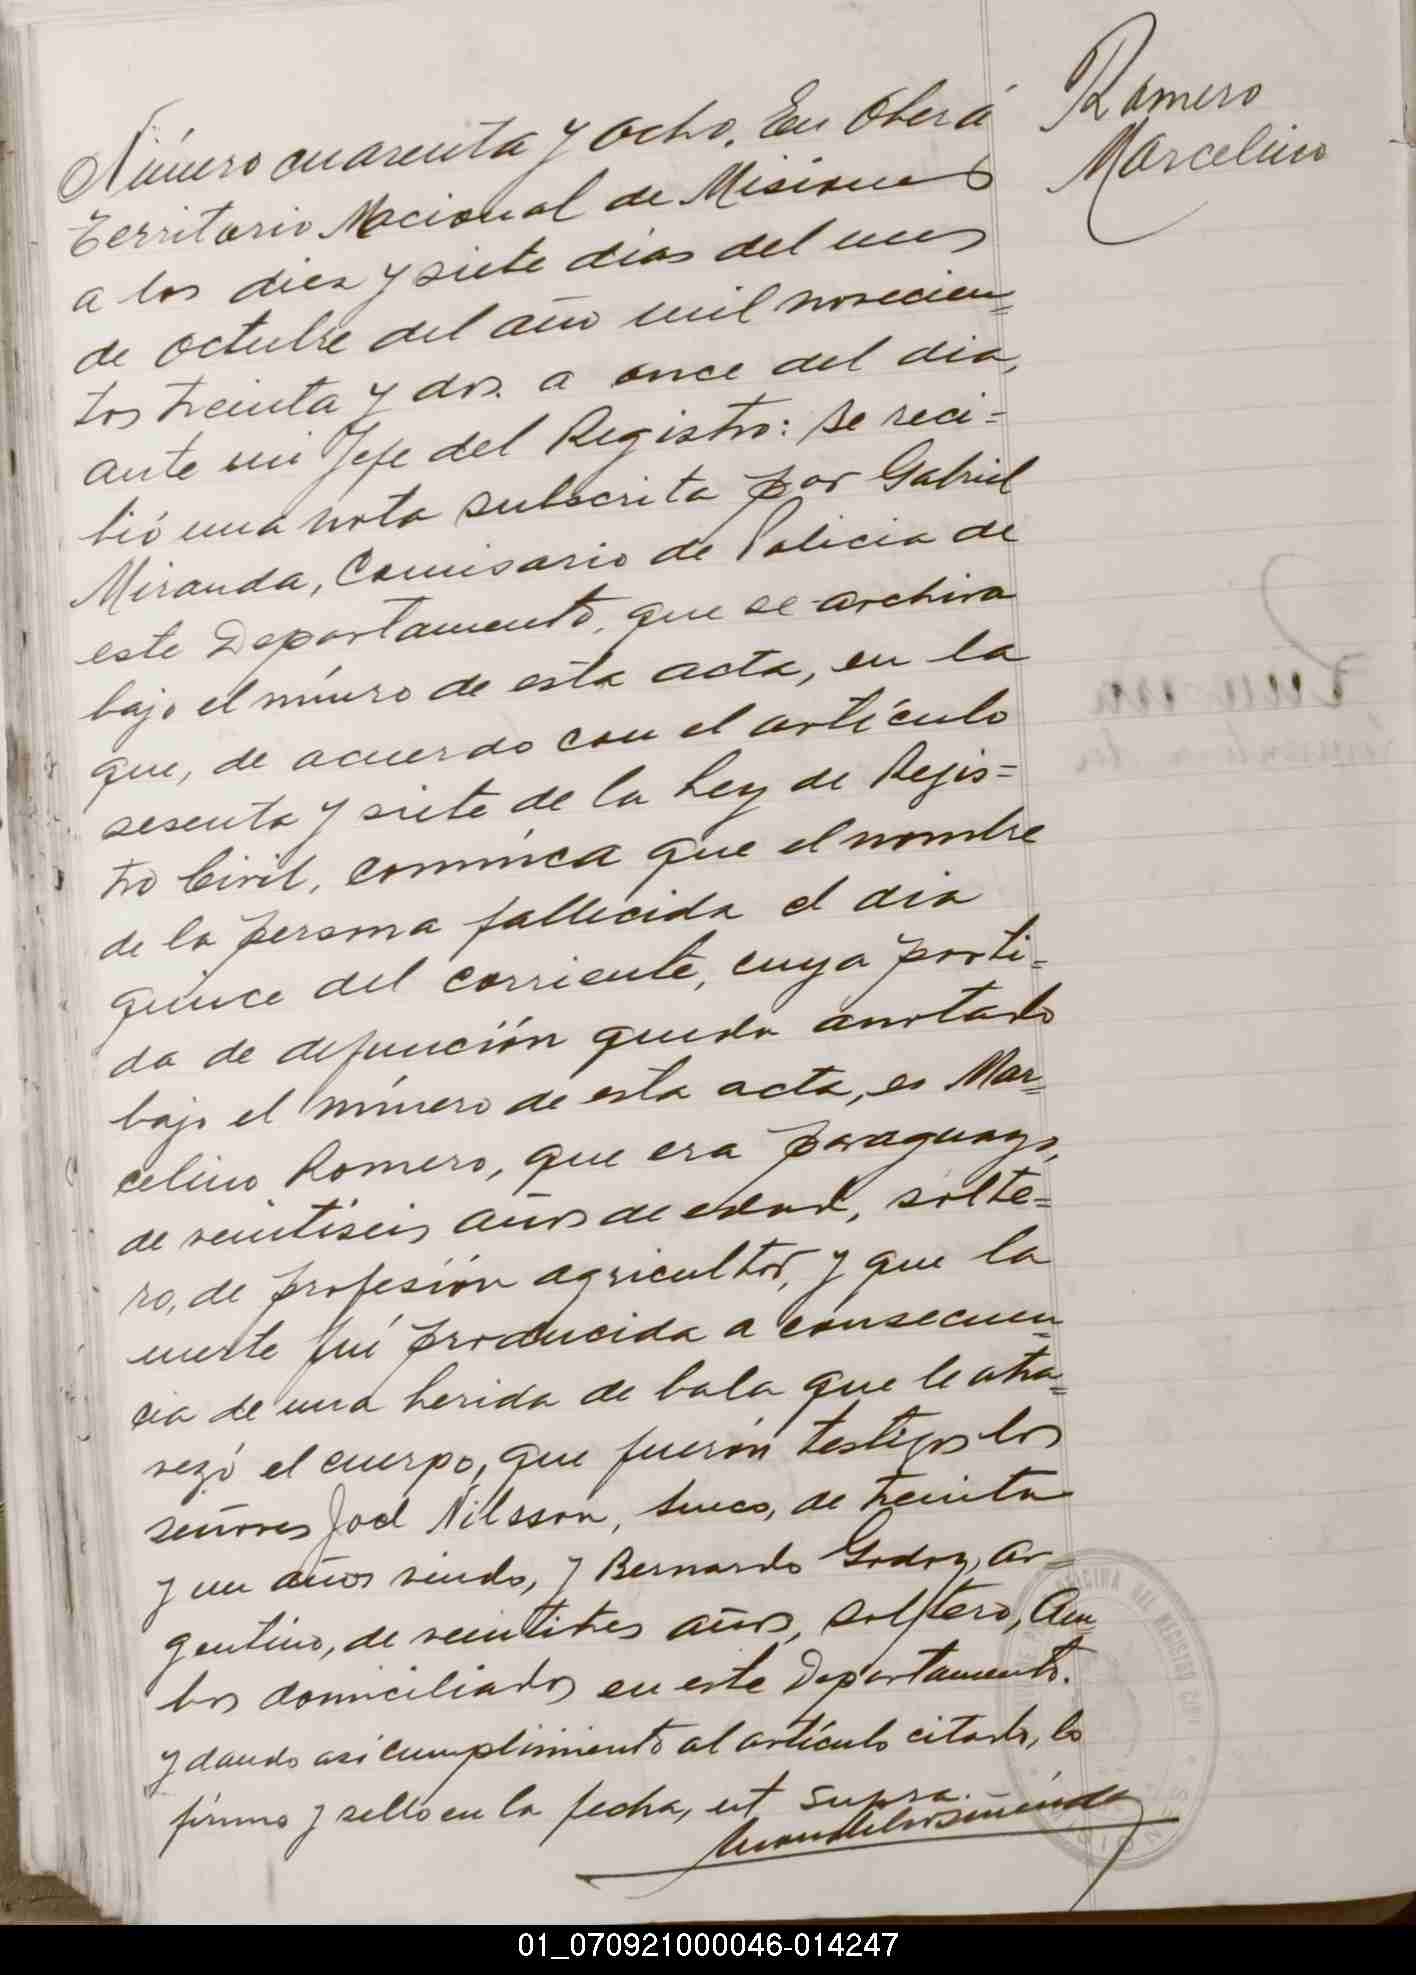 Romero
Marcelino
Número cuarenta y ocho. En Oberá
Territorio Nacional de Misiones
a los diez y siete dias del mes
de Octubre del año mil novecien=
tos treinta y dos. a once del dia,
ante mi Jefe del Registro: se reci=
bió una nota subscrita por Gabriel
Miranda, Comisario de Policia de
este Departamento, que se archiva
bajo el número de esta acta, en la
que, de acuerdo con el artículo
sesenta y siete de la Ley de Regis=
tro Civil, comunica que el nombre
de la persona fallecida el dia
quince del corriente, cuya parti=
da de defunción queda anotado
bajo el número de esta acta, es Mar=
celino Romero, que era paraguayo,
de veintiseis años de edad, solte=
ro, de profesión agricultor, y que la
muerte fué producida a consecuen=
cia de una herida de bala que le atra=
vezó el cuerpo, que fuerón testigos los
señores Joel Nilsson, sueco, de treinta
y un años viudo, y Bernardo Godoy, ar=
gentino, de veintitres años, soltero, Am=
bos domiciliados en este Departamento.
y dando asi cumplimiento al artículo citado, lo
firmo y sello en la fecha, ut supra.
01_070921000046-014247